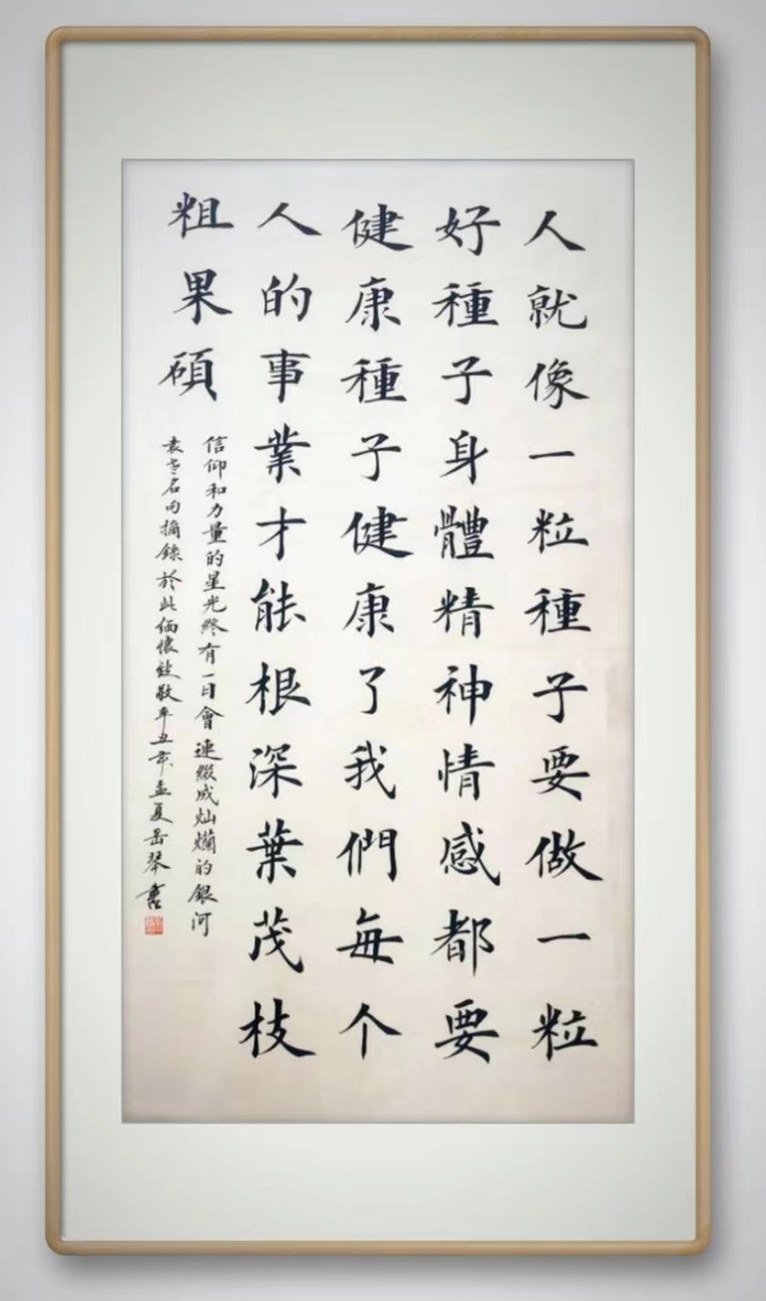 人就像一粒種子要做一粒
好種子身體精神情感都要
健康種子健康了我們每个
人的事業才能根深葉茂枝
粗果碩
信仰和力量的星光終有一日會連綴成灿爛的銀河
袁老名句摘錄於此緬懷致敬辛丑年孟夏岳琴書